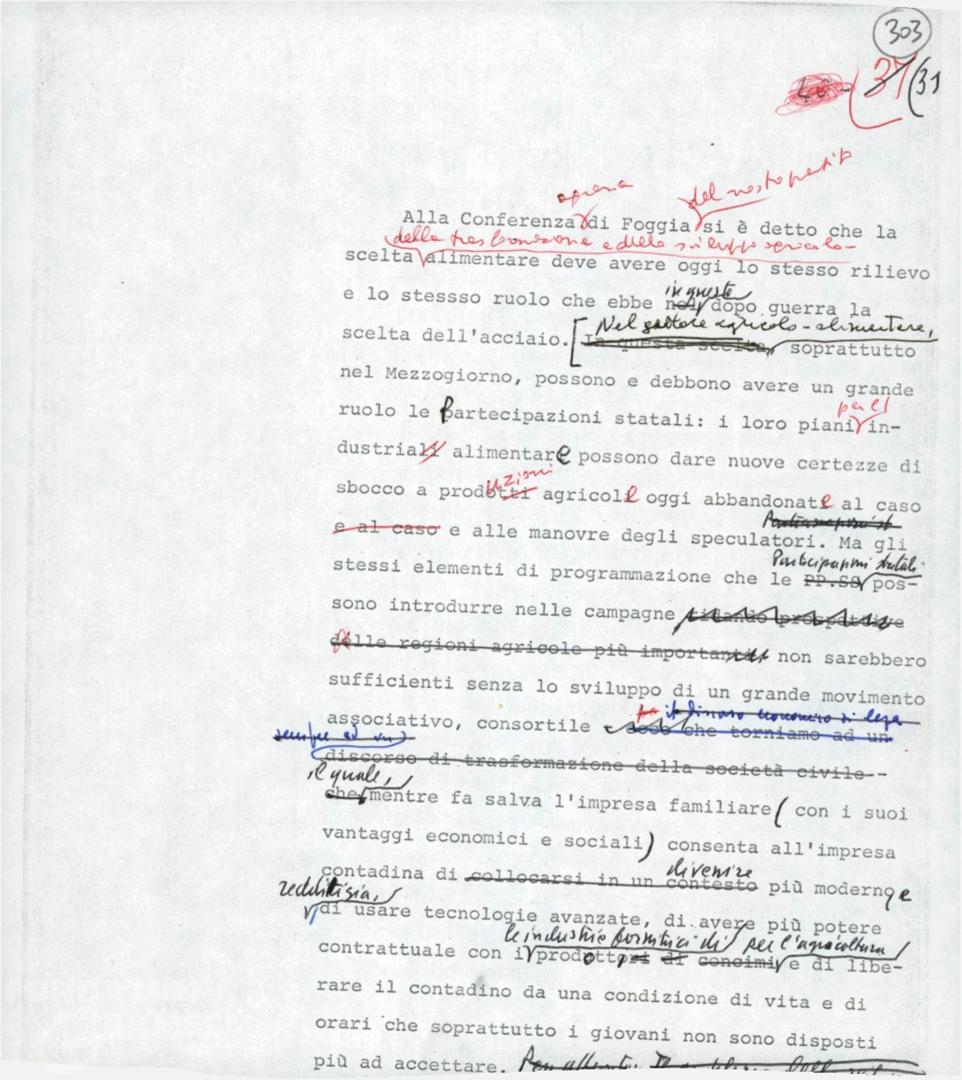 303
37 (31
agraria
del nostro partito
Alla Conferenza di Foggia si è detto che la
della trasformazione e dello sviluppo agricolo-
scelta alimentare deve avere oggi lo stesso rilievo
in questo
e lo stessso ruolo che ebbe nel dopo guerra la
Nel settore agricolo-alimentare,
scelta dell'acciaio. [In questa scelta, soprattutto
nel Mezzogiorno, possono e debbono avere un grande
per l'
ruolo le partecipazioni statali: i loro piani in-
dustriali alimentare possono dare nuove certezze di
uzioni
sbocco a prodotti agricole oggi abbandonate al caso
e al caso e alle manovre degli speculatori. Ma gli
Partecipazioni statali
stessi elementi di programmazione che le PP.SS pos-
sono introdurre nelle campagne prospettive
delle regioni agricole più importanti non sarebbero
sufficienti senza lo sviluppo di un grande movimento
associativo, consortile che torniamo ad un
sempre ad un
discorso di trasformazione della società civile--
il quale,
che mentre fa salva l'impresa familiare ( con i suoi
vantaggi economici e sociali) consenta all'impresa
divenire
contadina di collocarsi in un contesto più moderno e
redditizia,
di usare tecnologie avanzate, di avere più potere
le industrie fornitrici di per l'agricoltura
contrattuale con i prodotti di concimi e di libe-
rare il contadino da una condizione di vita e di
orari che soprattutto i giovani non sono disposti
più ad accettare.